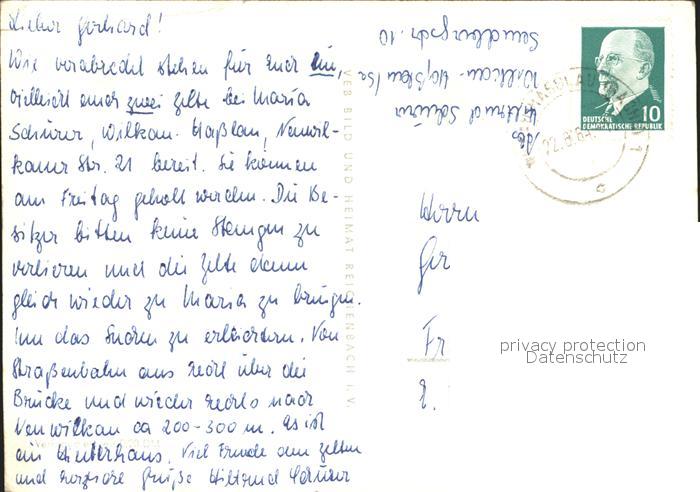 Lieber Gerhard!
Wie verabredet stehen für Euch ein,
vielleicht auch zwei Zelte bei Maria
Schürer, Wilkau-Haßlau, Neuwil-
kauer Str. 21 bereit. Sie können
am Freitag geholt werden. Die Be-
sitzer bitten keine Stangen zu
verlieren und die Zelte dann
gleich wieder zu Maria zu bringen.
Um das Suchen zu erleichtern. Von
Straßenbahn aus rechts über die
Brücke und wieder rechts nach
Neuwilkau ca 200-300 m. Es ist
ein Hinterhaus. Viel Freude am Zelten
und herzliche Grüße Hiltrud Schürer
VEB BILD UND HEIMAT REICHENBACH I. V.
Abs
Hiltrud Schürer
Wilkau-Haßlau /Sa
Sandbergstr. 10
10
DEUTSCHE
DEMOKRATISCHE REPUBLIK
22.8.6
c
Herrn
Ger
Fr
privacy protection
Datenschutz